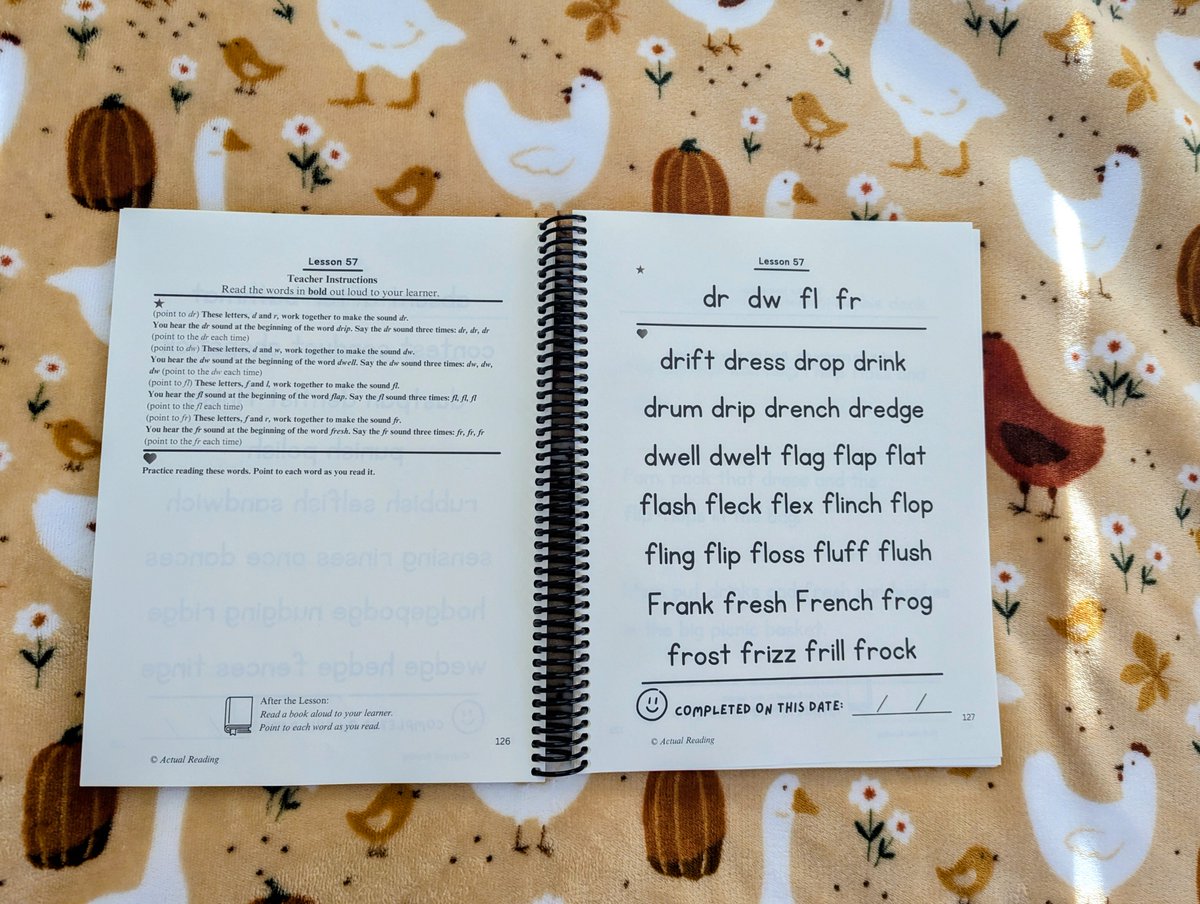 Lesson 57
Teacher Instructions
Read the words in bold out loud to your learner.
★
(point to dr) These letters, d and r, work together to make the sound dr.
You hear the dr sound at the beginning of the word drip. Say the dr sound three times: dr, dr, dr
(point to the dr each time)
(point to dw) These letters, d and w, work together to make the sound dw.
You hear the dw sound at the beginning of the word dwell. Say the dw sound three times: dw, dw,
dw (point to the dw each time)
(point to fl) These letters, f and l, work together to make the sound fl.
You hear the fl sound at the beginning of the word flap. Say the fl sound three times: fl, fl, fl
(point to the fl each time)
(point to fr) These letters, f and r, work together to make the sound fr.
You hear the fr sound at the beginning of the word fresh. Say the fr sound three times: fr, fr, fr
(point to the fr each time)
Practice reading these words. Point to each word as you read it.
After the Lesson:
Read a book aloud to your learner.
Point to each word as you read.
126
© Actual Reading
Lesson 57
★
dr dw fl fr
drift dress drop drink
drum drip drench dredge
dwell dwelt flag flap flat
flash fleck flex flinch flop
fling flip floss fluff flush
Frank fresh French frog
frost frizz frill frock
COMPLETED ON THIS DATE: / /
127
© Actual Reading